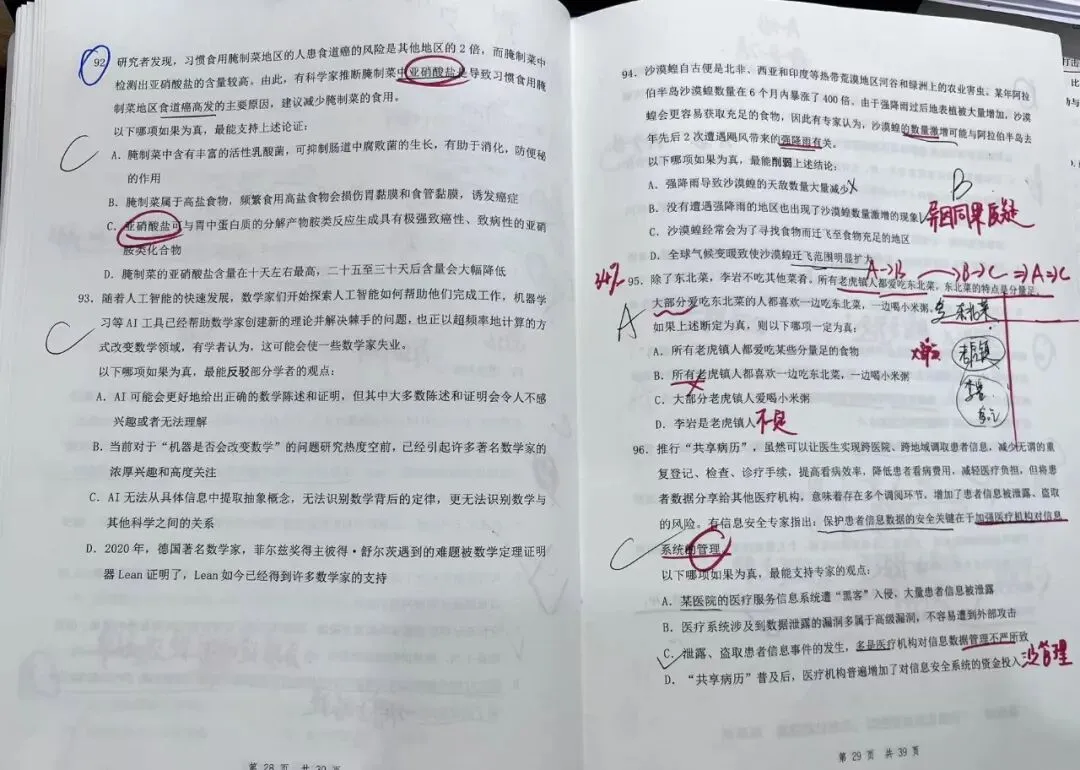 92. 研究者发现，习惯食用腌制菜地区的人患食道癌的风险是其他地区的 2 倍，而腌制菜中
检测出亚硝酸盐的含量较高。由此，有科学家推断腌制菜中亚硝酸盐是导致习惯食用腌
制菜地区食道癌高发的主要原因，建议减少腌制菜的食用。
以下哪项如果为真，最能支持上述论证：
C
A. 腌制菜中含有丰富的活性乳酸菌，可抑制肠道中腐败菌的生长，有助于消化，防便秘
的作用
B. 腌制菜属于高盐食物，频繁食用高盐食物会损伤胃黏膜和食管黏膜，诱发癌症
C. 亚硝酸盐可与胃中蛋白质的分解产物胺类反应生成具有极强致癌性、致病性的亚硝
胺类化合物
D. 腌制菜的亚硝酸盐含量在十天左右最高，二十五至三十天后含量会大幅降低
93. 随着人工智能的快速发展，数学家们开始探索人工智能如何帮助他们完成工作，机器学
习等 AI 工具已经帮助数学家创建新的理论并解决棘手的问题，也正以超频率地计算的方
式改变数学领域，有学者认为，这可能会使一些数学家失业。
C
以下哪项如果为真，最能反驳部分学者的观点：
A. AI 可能会更好地给出正确的数学陈述和证明，但其中大多数陈述和证明会令人不感
兴趣或者无法理解
B. 当前对于“机器是否会改变数学”的问题研究热度空前，已经引起许多著名数学家的
浓厚兴趣和高度关注
C. AI 无法从具体信息中提取抽象概念，无法识别数学背后的定律，更无法识别数学与
其他科学之间的关系
D. 2020 年，德国著名数学家，菲尔兹奖得主彼得·舒尔茨遇到的难题被数学定理证明
器 Lean 证明了，Lean 如今已经得到许多数学家的支持
第 28 页 共 39 页
94. 沙漠蝗自古便是北非、西亚和印度等热带荒漠地区河谷和绿洲上的农业害虫。某年阿拉
伯半岛沙漠蝗数量在 6 个月内暴涨了 400 倍。由于强降雨过后地表植被大量增加，沙漠
蝗会更容易获取充足的食物，因此有专家认为，沙漠蝗的数量激增可能与阿拉伯半岛去
年先后 2 次遭遇飓风带来的强降雨有关。
以下哪项如果为真，最能削弱上述结论：
A. 强降雨导致沙漠蝗的天敌数量大量减少
B
B. 没有遭遇强降雨的地区也出现了沙漠蝗数量激增的现象
异因同果 质疑
C. 沙漠蝗经常会为了寻找食物而迁飞至食物充足的地区
D. 全球气候变暖致使沙漠蝗迁飞范围明显扩大
A→B B→C ⇒A⇒C
95. 除了东北菜，李岩不吃其他菜肴。所有老虎镇人都爱吃东北菜，东北菜的特点是分量足，
大部分爱吃东北菜的人都喜欢一边吃东北菜，一边喝小米粥。
A
如果上述断定为真，则以下哪项一定为真：
A. 所有老虎镇人都爱吃某些分量足的食物
B. 所有老虎镇人都喜欢一边吃东北菜，一边喝小米粥
C. 大部分老虎镇人爱喝小米粥
D. 李岩是老虎镇人
不是
96. 推行“共享病历”，虽然可以让医生实现跨医院、跨地域调取患者信息，减少无谓的重
复登记、检查、诊疗手续，提高看病效率，降低患者看病费用，减轻医疗负担，但将患
者数据分享给其他医疗机构，意味着存在多个调阅环节，增加了患者信息被泄露、盗取
的风险。有信息安全专家指出：保护患者信息数据的安全关键在于加强医疗机构对信息
系统的管理。
C
以下哪项如果为真，最能支持专家的观点：
A. 某医院的医疗服务信息系统遭“黑客”入侵，大量患者信息被泄露
B. 医疗系统涉及到数据泄露的漏洞多属于高级漏洞，不容易遭到外部攻击
C. 泄露、盗取患者信息事件的发生，多是医疗机构对信息数据管理不严所致
D. “共享病历”普及后，医疗机构普遍增加了对信息安全系统的资金投入
没管理
第 29 页 共 39 页